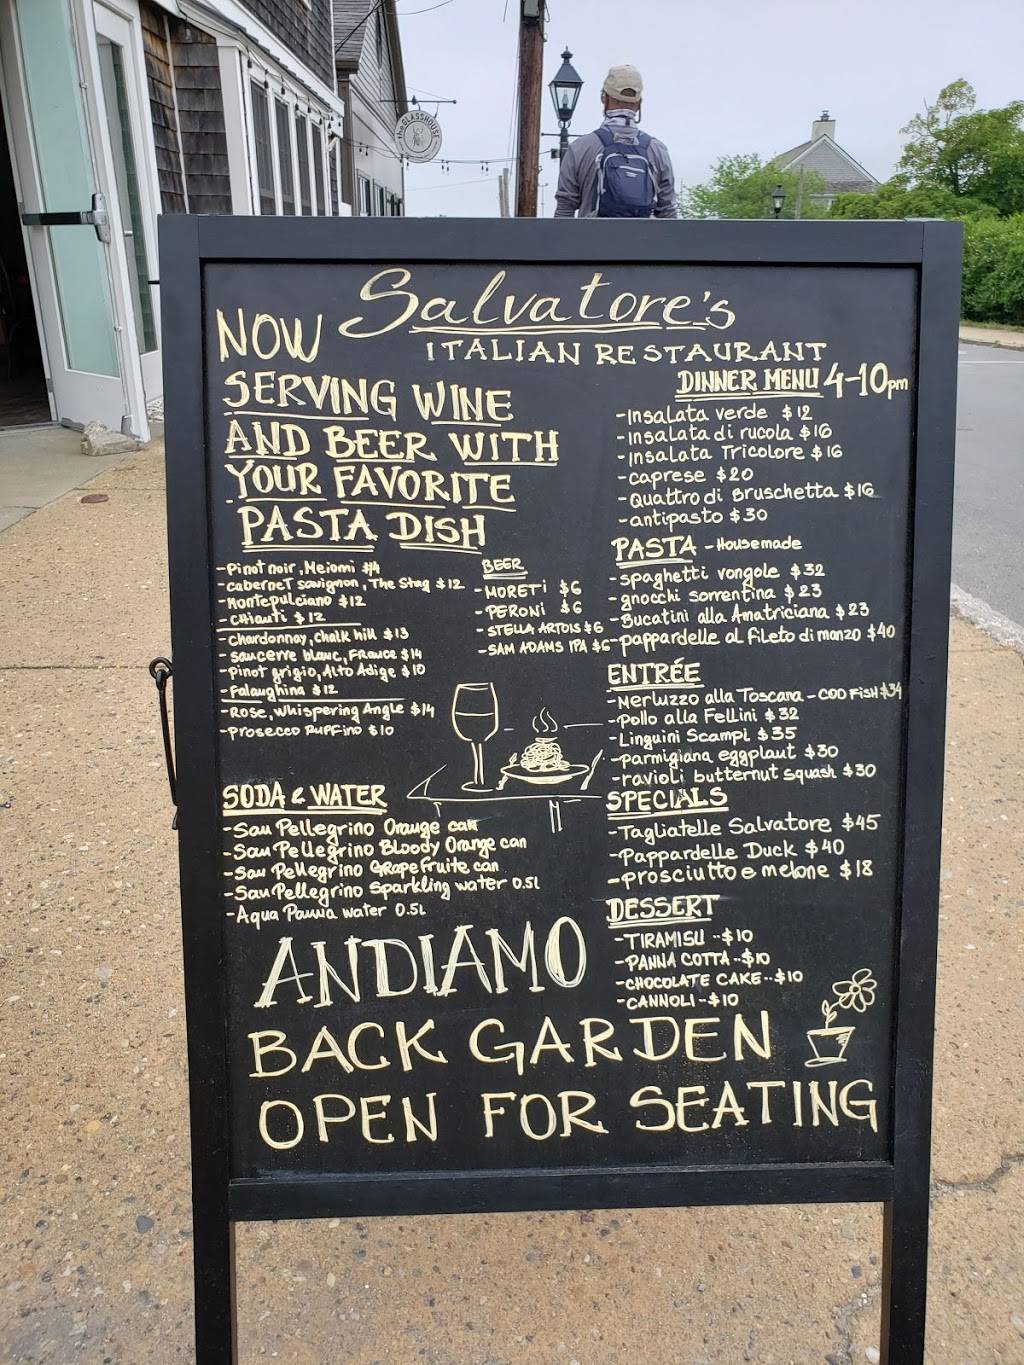 the GLASSHOUSE
Salvatore's
ITALIAN RESTAURANT
NOW
SERVING WINE
AND BEER WITH
YOUR FAVORITE
PASTA DISH
-Pinot noir, Meiomi $14
-cabernet sauvignon, The Stag $12
-Montepulciano $12
-CHianti $12
-Chardonnay, chalk hill $13
-sancerre blanc, France $14
-Pinot grigio, Alto Adige $10
-Falanghina $12
-Rose, Whispering Angle $14
-Prosecco Ruffino $10
BEER
-MORETI $6
-PERONI $6
-STELLA ARTOIS $6
-SAM ADAMS IPA $6
SODA & WATER
-San Pellegrino Orange can
-San Pellegrino Bloody Orange can
-San Pellegrino Grapefruite can
-San Pellegrino sparkling water 0.5L
-Aqua Panna water 0.5L
DINNER MENU 4-10pm
-Insalata verde $12
-Insalata di rucola $16
-Insalata Tricolore $16
-caprese $20
-Quattro di Bruschetta $16
-antipasto $30
PASTA - Housemade
-spaghetti vongole $32
-gnocchi sorrentina $23
-Bucatini alla Amatriciana $23
-pappardelle al fileto di manzo $40
ENTRÉE
-Merluzzo alla Toscana - COD FISH $34
-pollo alla Fellini $32
-Linguini Scampi $35
-parmigiana eggplant $30
-ravioli butternut squash $30
SPECIALS
-Tagliatelle Salvatore $45
-Pappardelle Duck $40
-prosciutto e melone $18
DESSERT
-TIRAMISU --$10
-PANNA COTTA--$10
-CHOCOLATE CAKE--$10
-CANNOLI--$10
ANDIAMO
BACK GARDEN
OPEN FOR SEATING